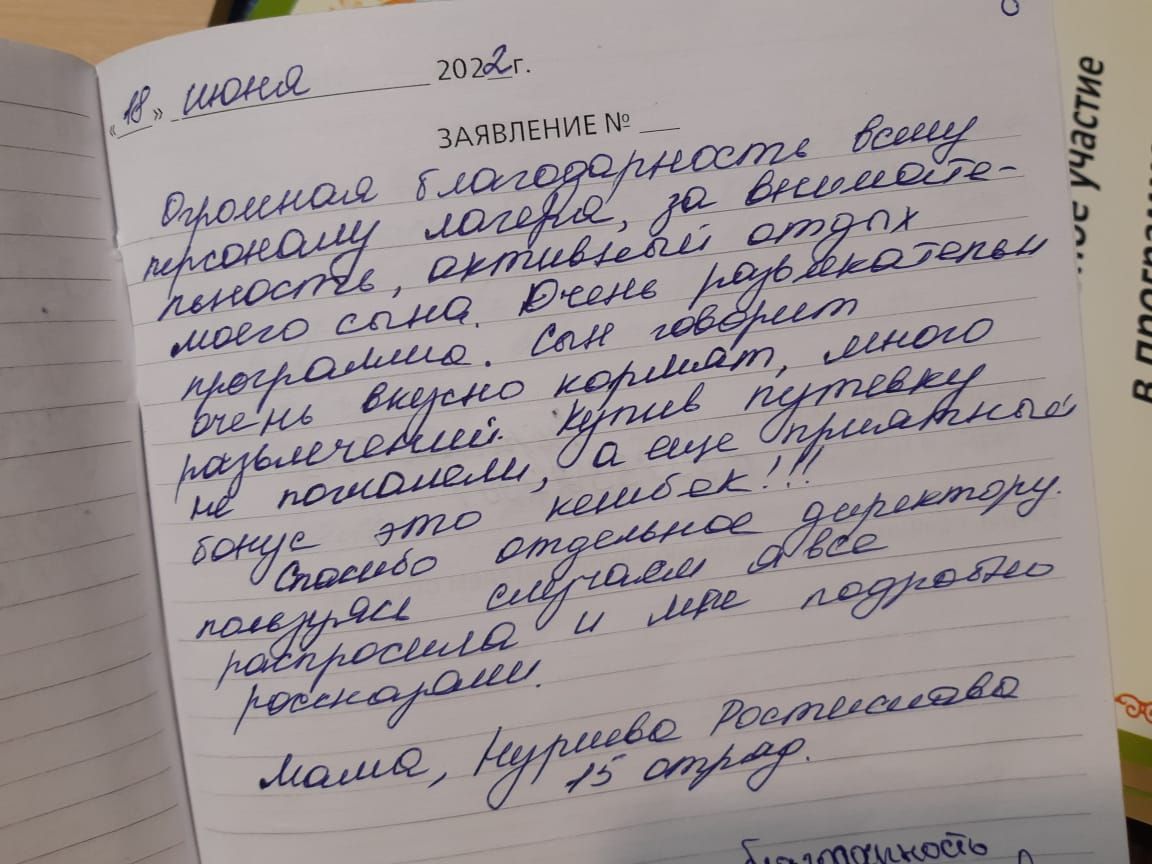 «18» июня 2022г.
ЗАЯВЛЕНИЕ № ___
Огромная благодарность всему
персоналу лагеря, за внимате-
льность, активный отдых
моего сына. Очень развлекательн
программа. Сын говорит
очень вкусно кормят, много
развлечений. Купив путевку
не пожалели, а еще приятный
бонус это кешбек!!!
Спасибо отдельное директору.
пользуясь случаем я все
распросила и мне подробно
рассказали.
Мама, Нуриева Ростислава
15 отряд.
благодарность
ное участие
в програм